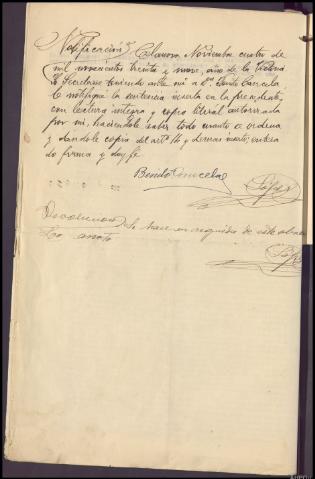 Notificación} Celanova Noviembre cuatro de
mil novecientos treinta y nueve, año de la Victoria
Yo Secretario teniendo ante mi a Dº. Benito Cancela
le notifiqué la sentencia inserta en la precedente,
con lectura integra y copia literal autorizada
por mi, haciendole saber todo cuanto se ordena
y dandole copia del artº 16 y demas, entera
do firma y doy fé
Benito Cancela
López
Devolucion} Se hace en seguida de este
Lo anoto
López